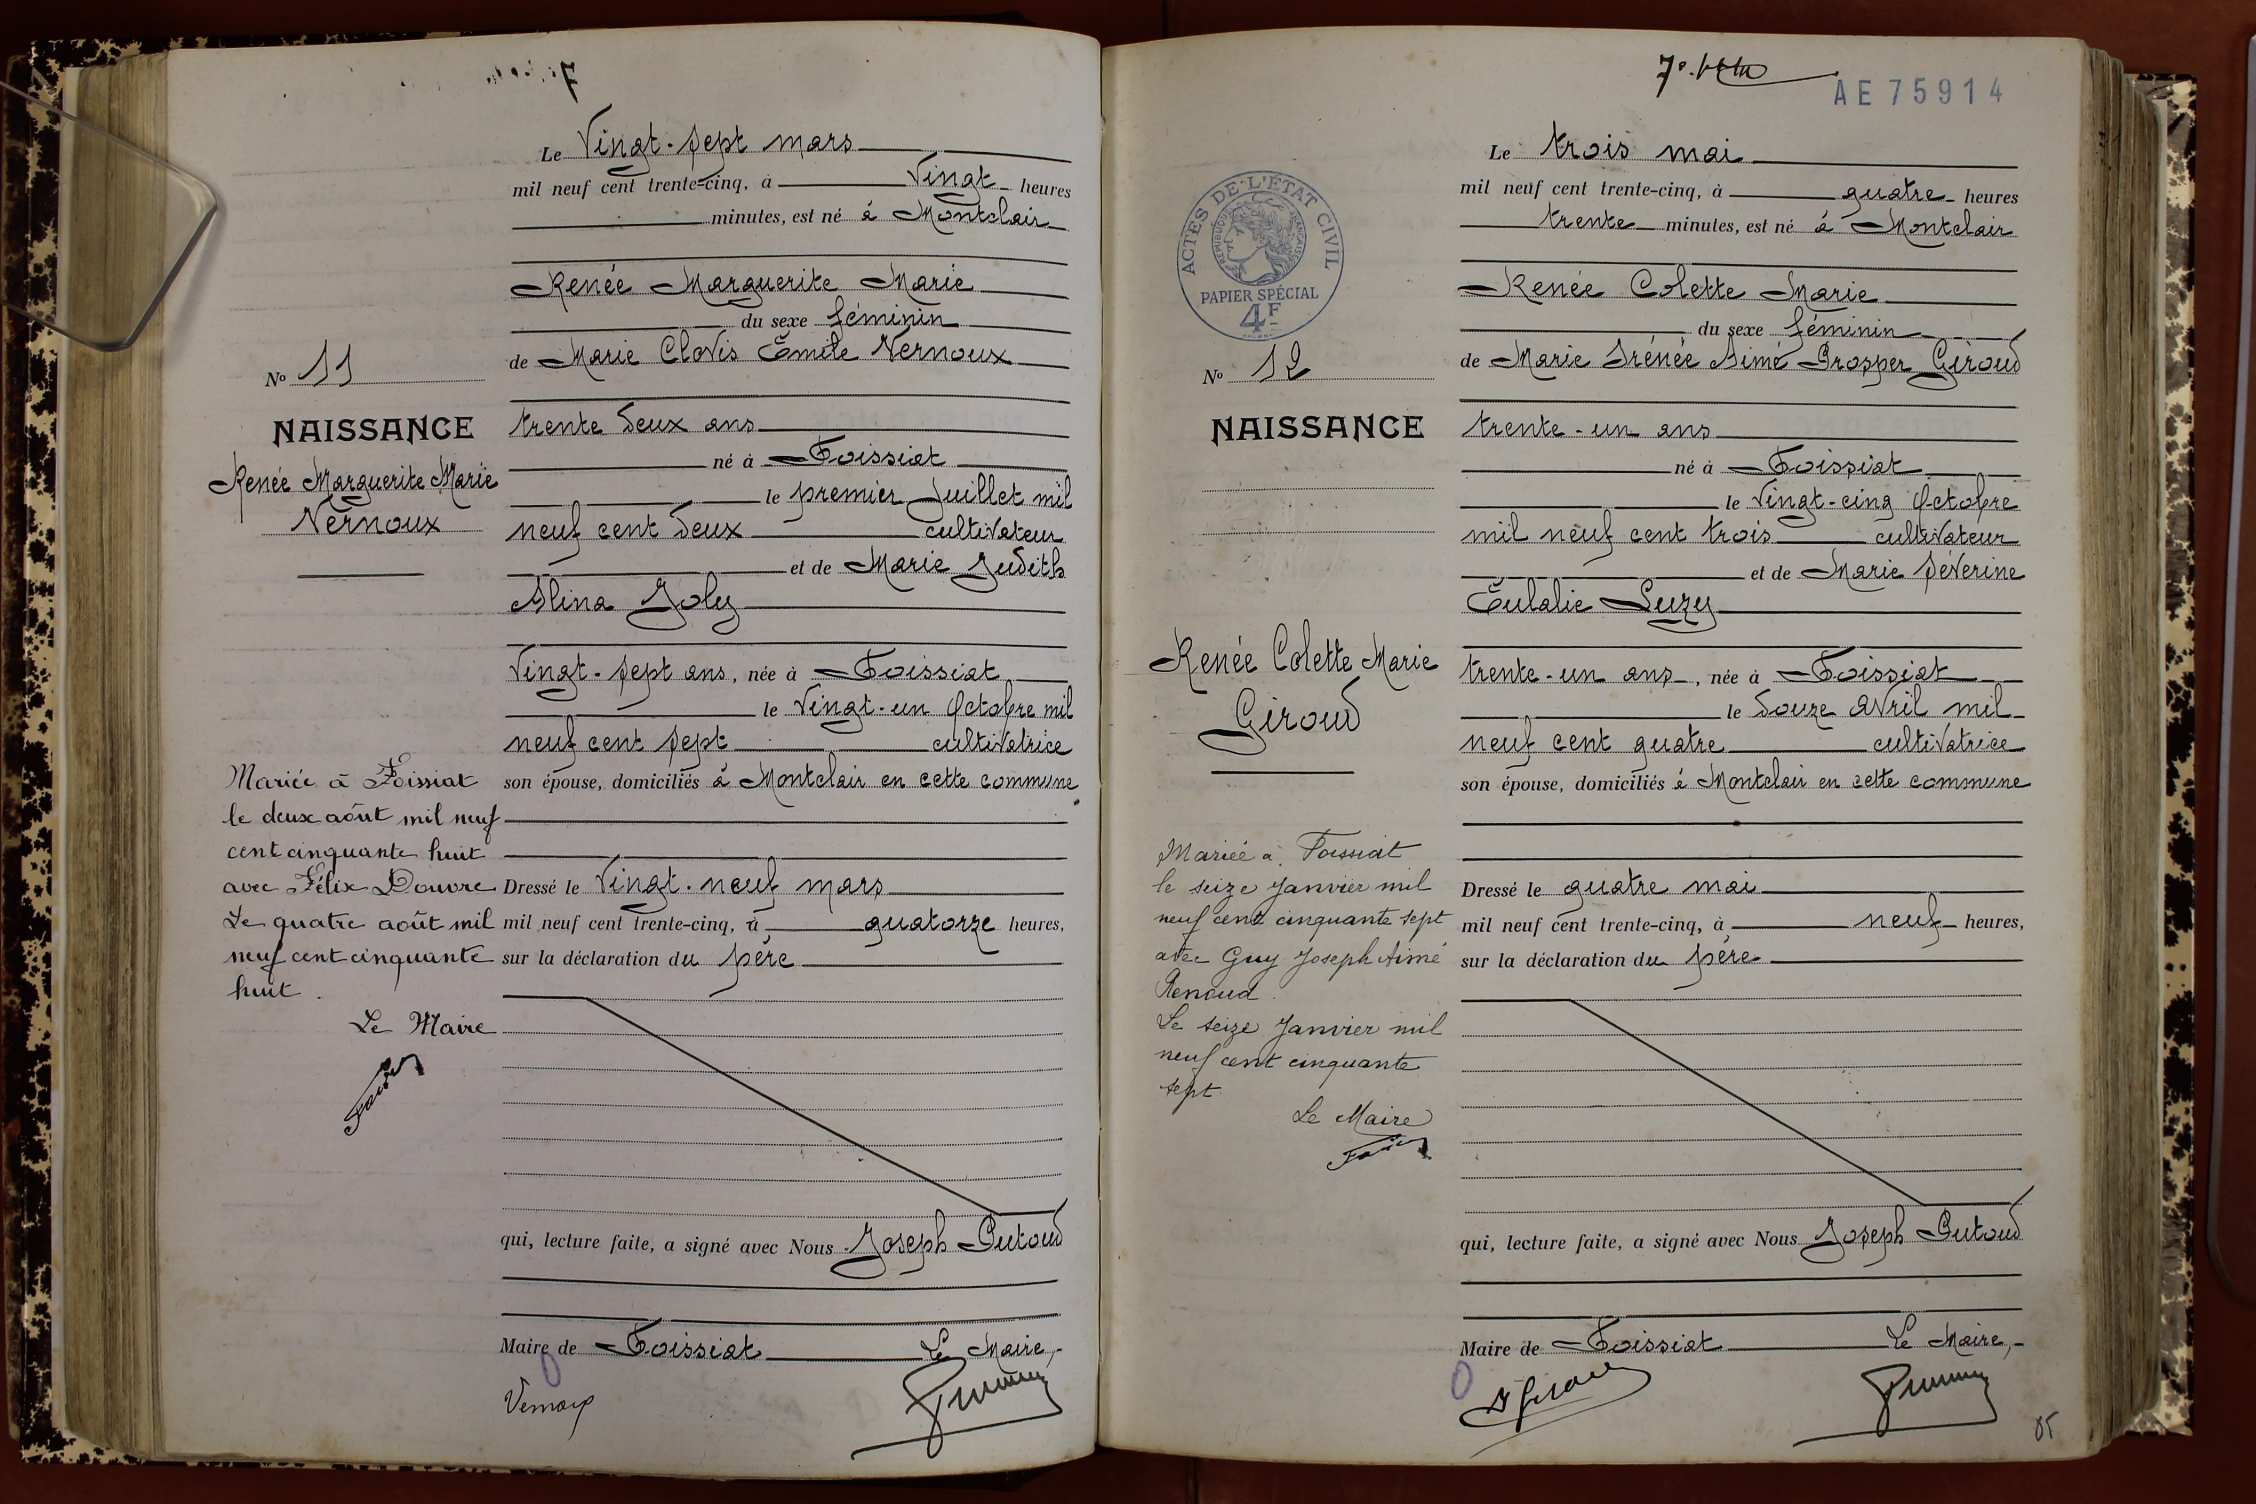 Le Vingt-sept mars
mil neuf cent trente-cinq, à Vingt heures
minutes, est né à Montclair
Renée Marguerite Marie
du sexe féminin
de Marie Clovis Emile Vernoux
No 11
NAISSANCE
Renée Marguerite Marie
Vernoux
trente deux ans
né à Foissiat
le premier Juillet mil
neuf cent deux cultivateur
et de Marie Judith
Alina Joly
Vingt-sept ans, née à Foissiat
le Vingt-un Octobre mil
neuf cent sept cultivatrice
son épouse, domiciliés à Montclair en cette commune
Dressé le Vingt-neuf mars
mil neuf cent trente-cinq, à quatorze heures,
sur la déclaration du père
Mariée à Foissiat
le deux août mil neuf
cent cinquante huit
avec Félix Douvre
Le quatre août mil
neuf cent cinquante
huit.
Le Maire
qui, lecture faite, a signé avec Nous Joseph Putoud
Maire de Foissiat Le Maire,
Vernoux
7e
AE 75914
Le trois mai
mil neuf cent trente-cinq, à quatre heures
trente minutes, est né à Montclair
Renée Colette Marie
du sexe féminin
de Marie Irénée Aimé Prosper Giroud
ACTES DE L'ÉTAT CIVIL
RÉPUBLIQUE FRANÇAISE
PAPIER SPÉCIAL
4F
No 12
NAISSANCE
Renée Colette Marie
Giroud
trente-un ans
né à Foissiat
le Vingt-cinq Octobre
mil neuf cent trois cultivateur
et de Marie Séverine
Eulalie Luzy
trente-un ans, née à Foissiat
le douze Avril mil
neuf cent quatre cultivatrice
son épouse, domiciliés à Montclair en cette commune
Dressé le quatre mai
mil neuf cent trente-cinq, à neuf heures,
sur la déclaration du père
Mariée à Foissiat
le seize Janvier mil
neuf cent cinquante sept
avec Guy Joseph Aimé
Renoud.
Le seize Janvier mil
neuf cent cinquante
sept
Le Maire
qui, lecture faite, a signé avec Nous Joseph Putoud
Maire de Foissiat Le Maire,
Giroud